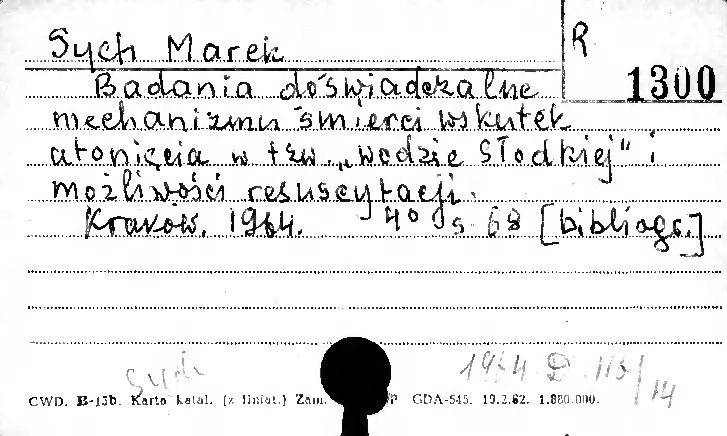 Sych Marek
R
1300
Badania doświadczalne
mechanizmu śmierci wskutek
utonięcia w tzw. „wodzie słodkiej" i
możliwości resuscytacji.
Kraków. 1964. 4° s. 68 [bibliogr.]
Sych
1964 D. 116/14
CWD. B-15b. Karta katal. (z liniat.) Zam. GDA-545. 19.2.62. 1.880.000.